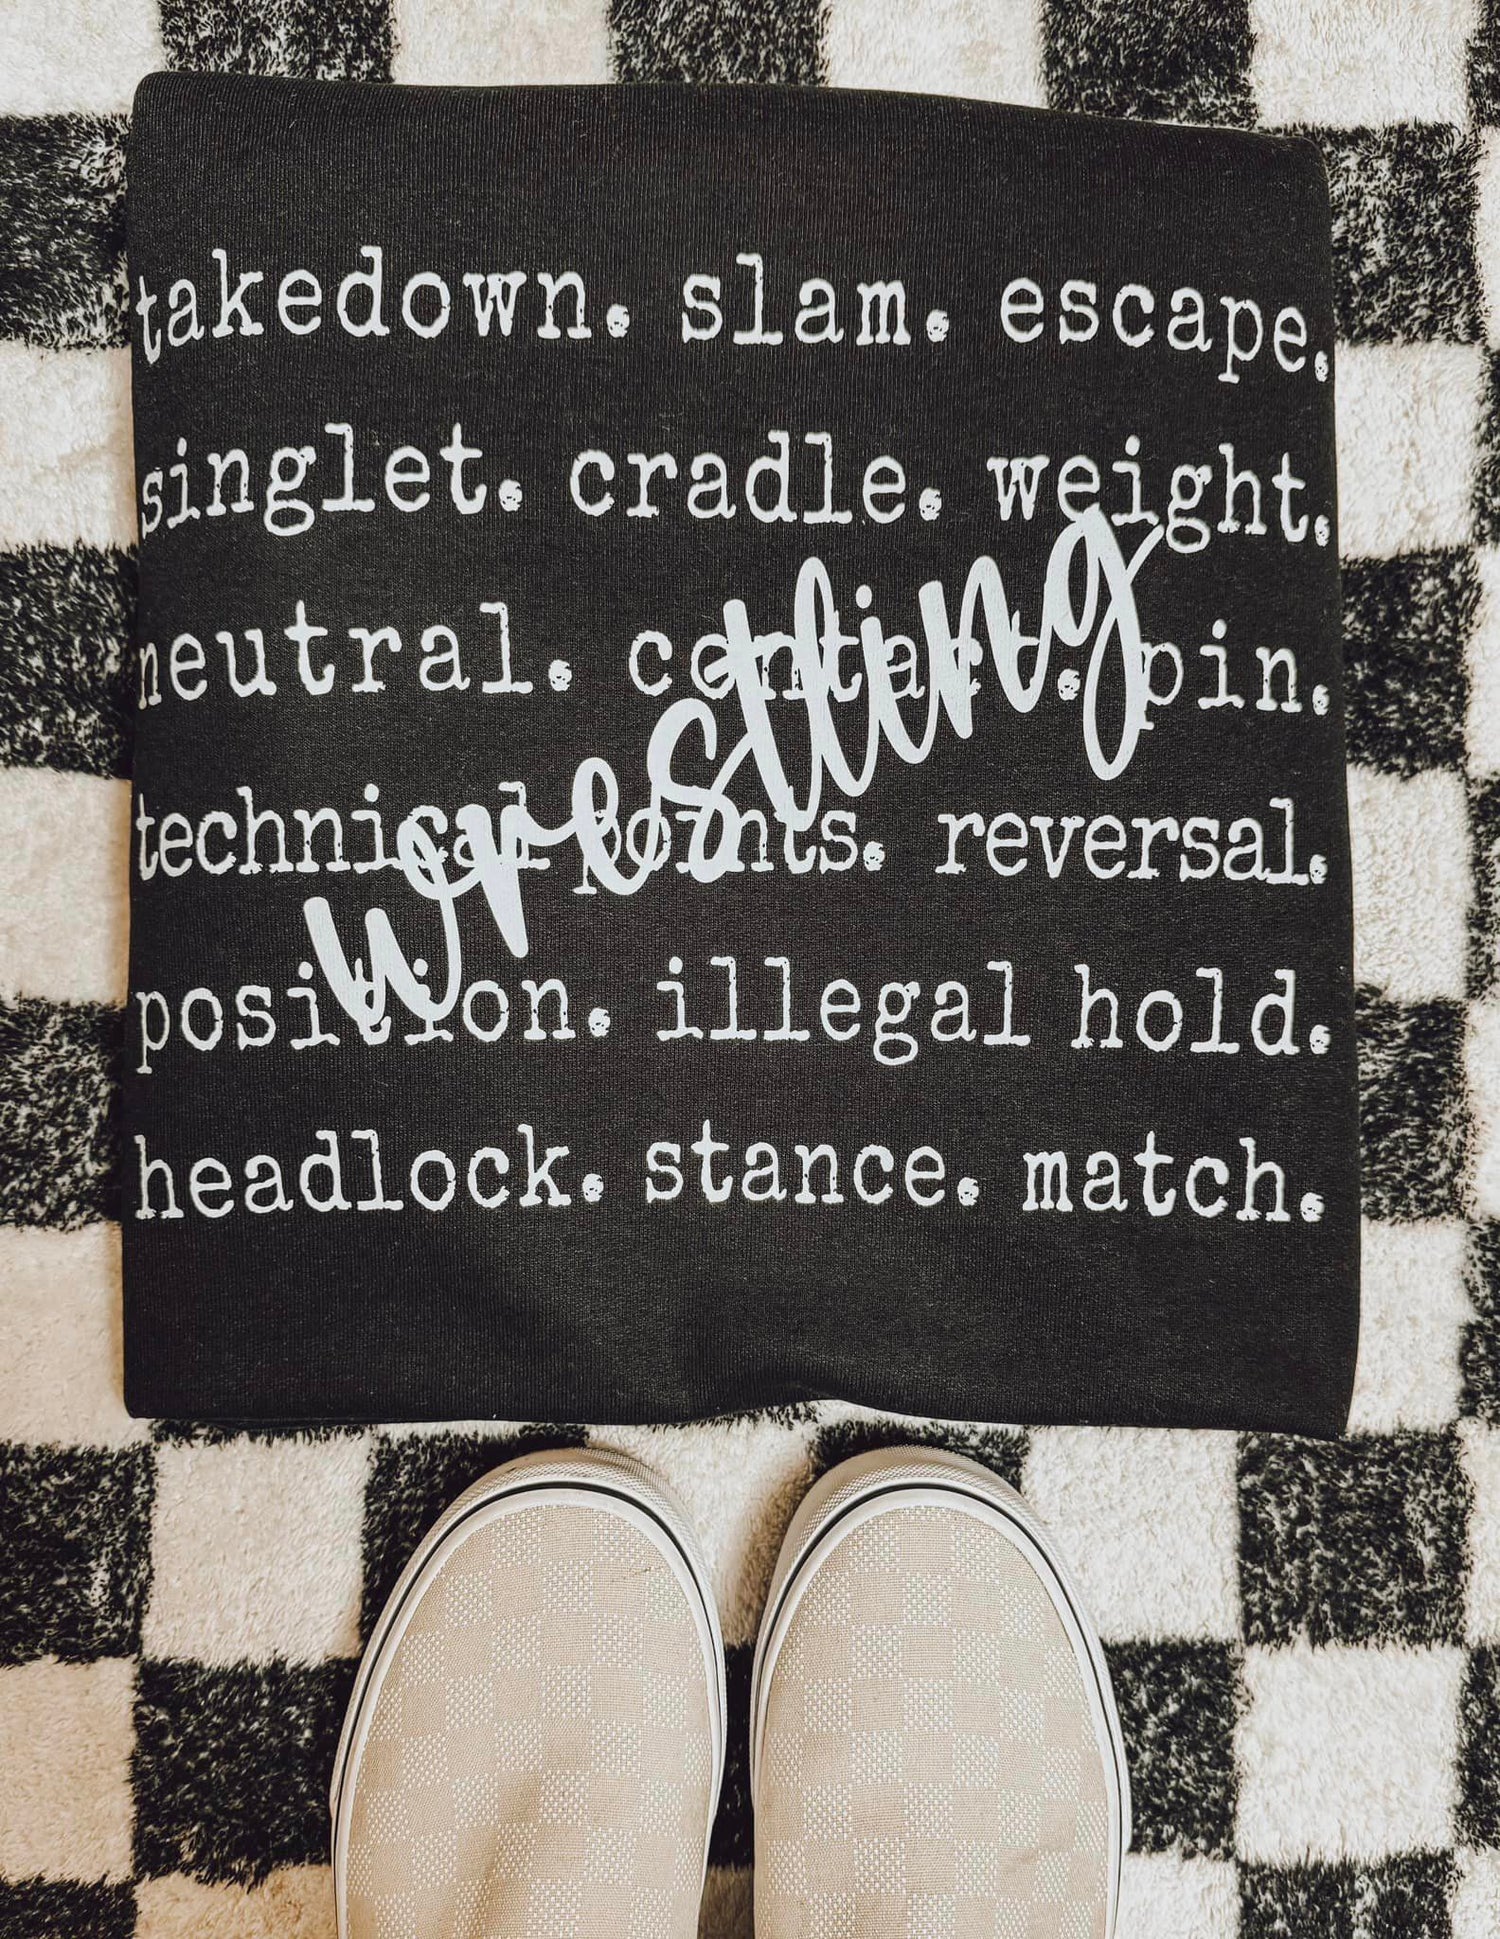 takedown. slam. escape.
singlet. cradle. weight.
neutral. contact. pin.
technical points. reversal.
position. illegal hold.
headlock. stance. match.
wrestling